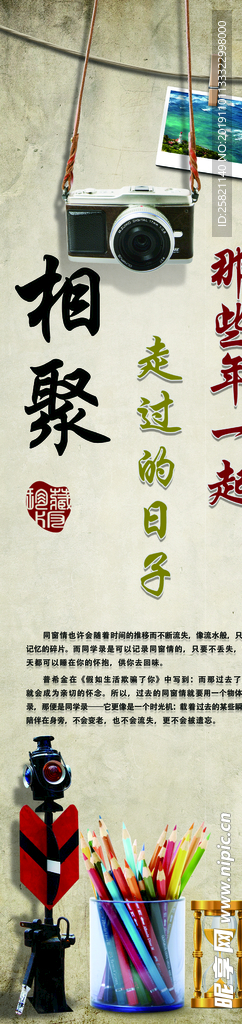 相聚
那些年一起
走过的日子
珍藏
同窗情也许会随着时间的推移而不断流失，像流水般，只
记忆的碎片。而同学录是可以记录同窗情的，只要不丢失，
天都可以睡在你的怀抱，供你去回味。
普希金在《假如生活欺骗了你》中写到：而那过去了
就会成为亲切的怀念。所以，过去的同窗情就要用一个物体
录，那便是同学录——它更像是一个时光机：载着过去的某些瞬
陪伴在身旁，不会变老，也不会流失，更不会被遗忘。
ID:25821140 NO:20191101133322998000
昵享网 www.nipic.cn
昵享网 www.nipic.com